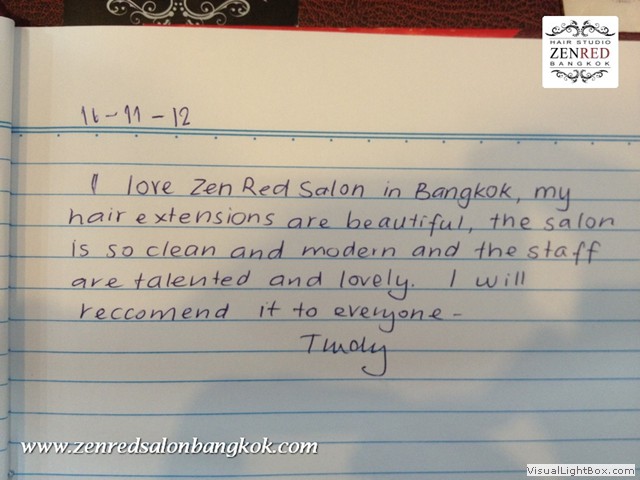 HAIR STUDIO
ZENRED
BANGKOK
16-11-12
I love Zen Red Salon in Bangkok, my
hair extensions are beautiful, the salon
is so clean and modern and the staff
are talented and lovely. I will
reccomend it to everyone -
www.zenredsalonbangkok.com
VisualLightBox.com